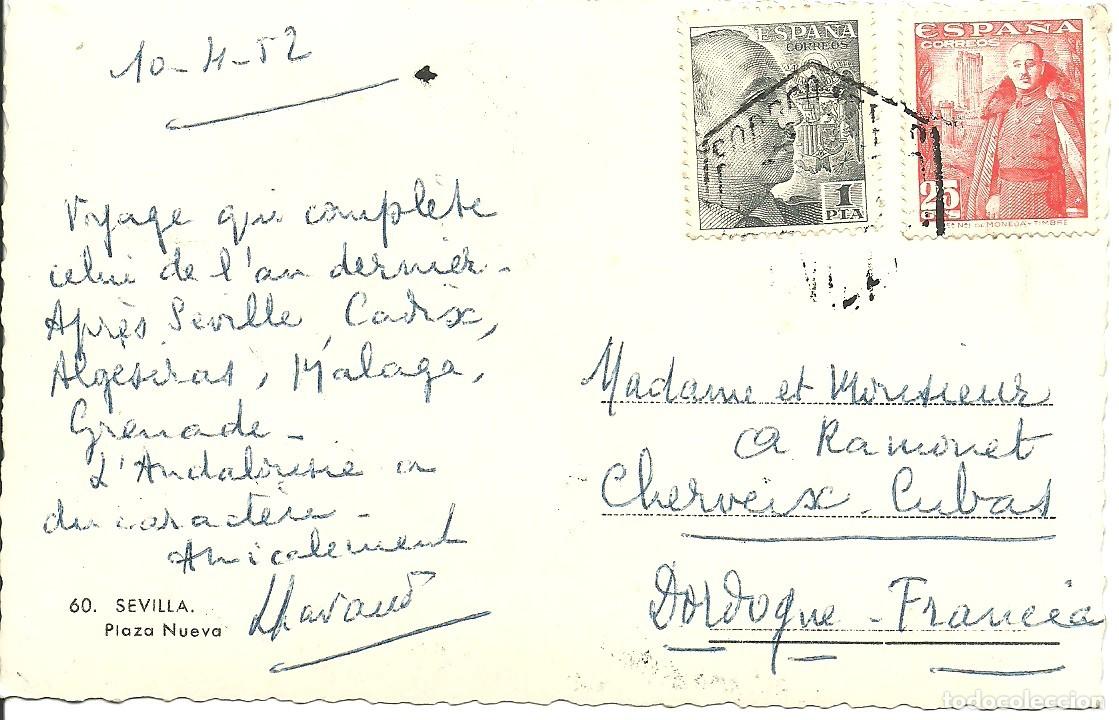 10-4-52
Voyage qui complète
celui de l'an dernier-
Après Séville, Cadix,
Algésiras, Malaga,
Grenade-
L'Andalousie a
du caractère-
Amicalement
60. SEVILLA.
Plaza Nueva
ESPAÑA
CORREOS
1
PTA
ESPAÑA
CORREOS
25
Madame et Monsieur
Ramonet
Cherveix-Cubas
Dordogne-Francia
todocoleccion